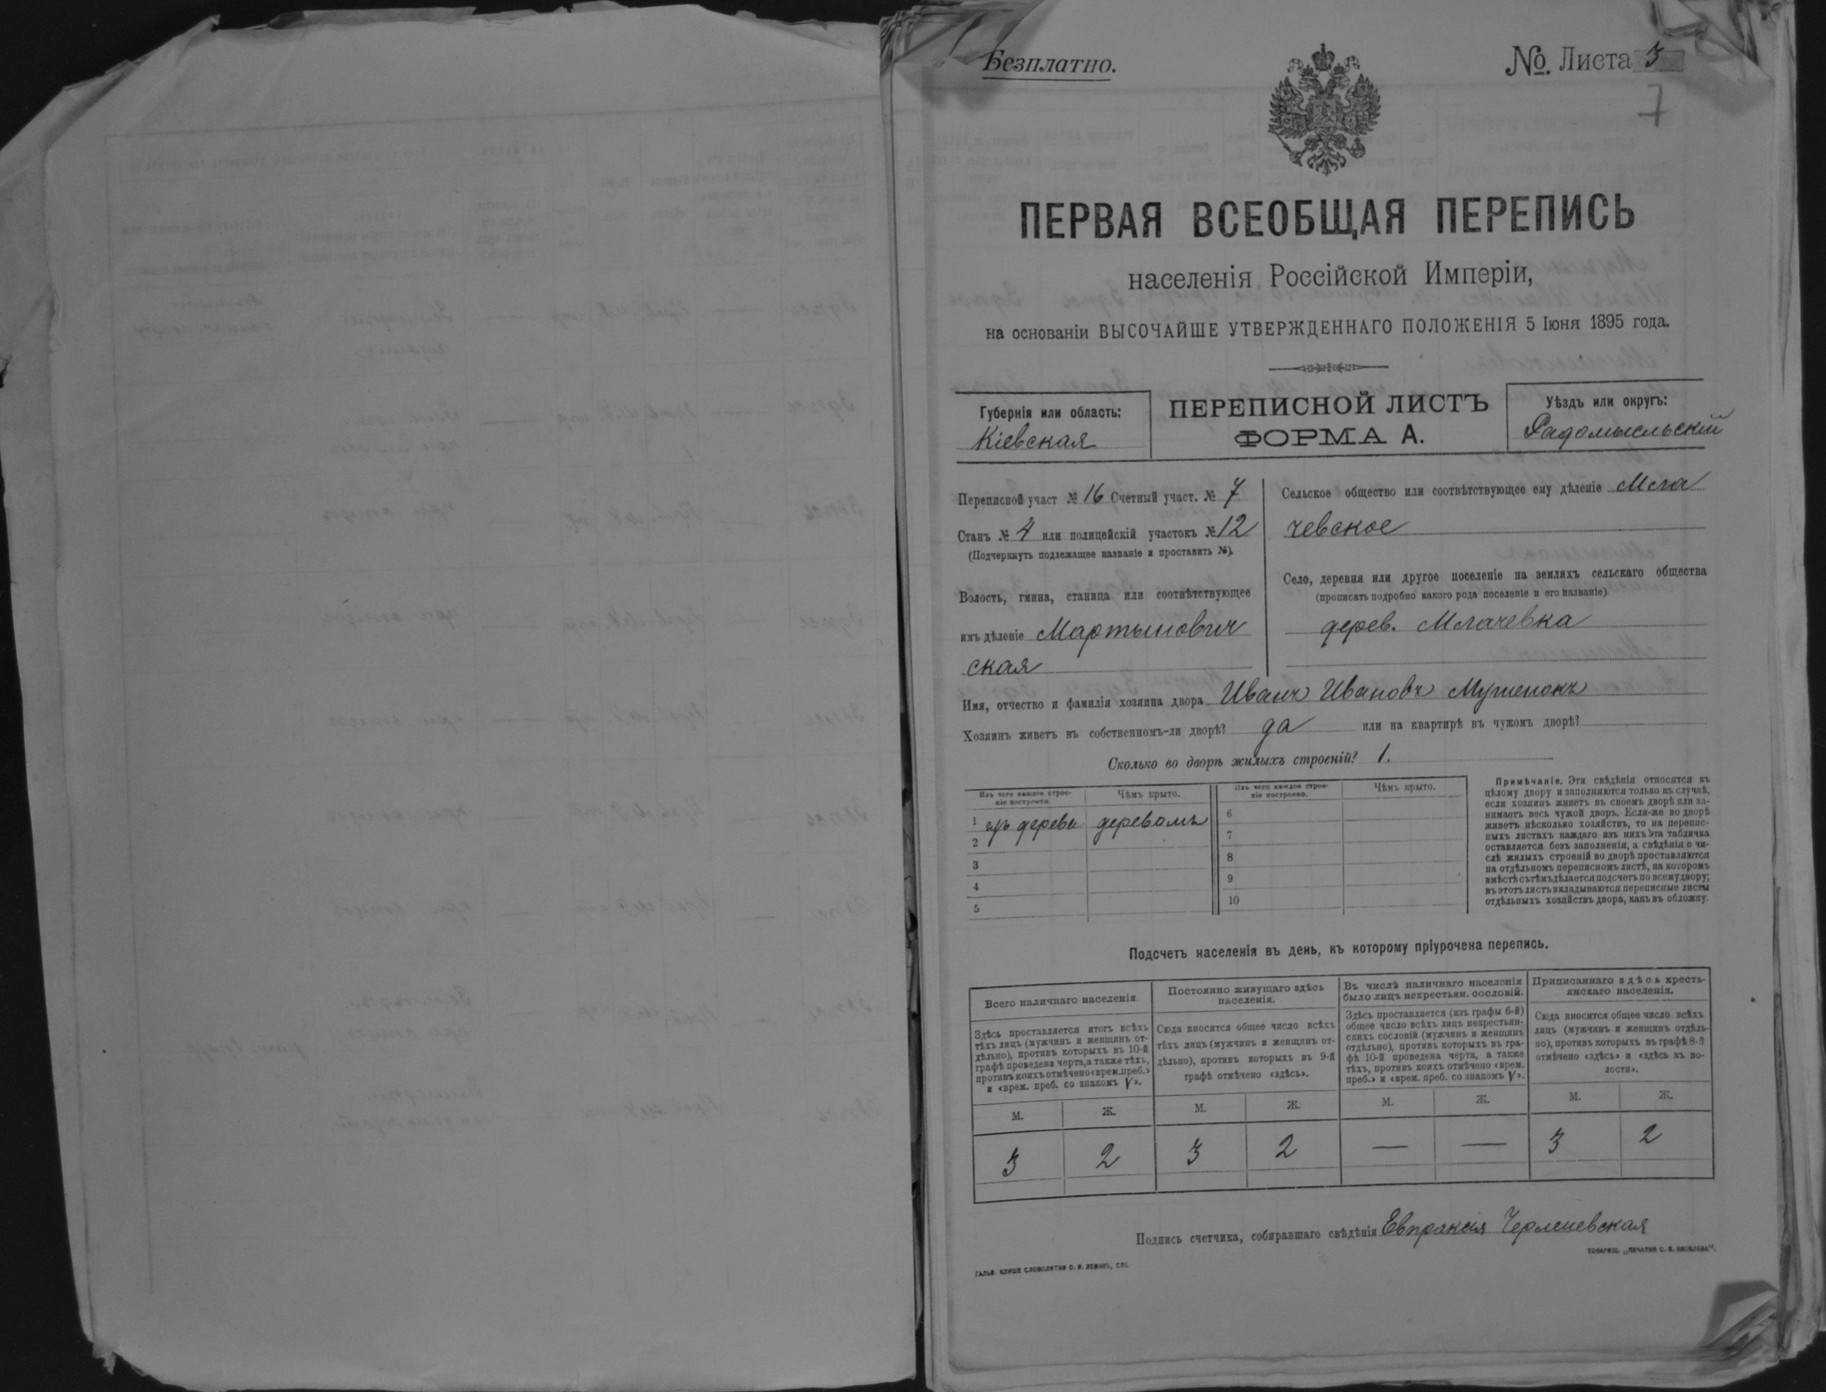 Безплатно.
№ Листа 3
7
ПЕРВАЯ ВСЕОБЩАЯ ПЕРЕПИСЬ
населенія Россійской Имперіи,
на основаніи ВЫСОЧАЙШЕ УТВЕРЖДЕННАГО ПОЛОЖЕНІЯ 5 Іюня 1895 года.
Губернія или область:
Кіевская
ПЕРЕПИСНОЙ ЛИСТЪ
ФОРМА А.
Уѣздъ или округъ:
Радомысльскій
Переписной участ № 16 Счетный участ. № 7
Станъ № 4 или полицейскій участокъ № 12
(Подчеркнуть подлежащее названіе и проставить №).
Волость, гмина, станица или соотвѣтствующее
имъ дѣленіе Мартынович
ская
Сельское общество или соотвѣтствующее ему дѣленіе Мла
чевское
Село, деревня или другое поселеніе на земляхъ сельскаго общества
(прописать подробно какого рода поселеніе и его названіе)
дерев. Млачевка
Имя, отчество и фамилія хозяина двора Иванъ Ивановъ Мушенокъ
Хозяинъ живетъ въ собственномъ-ли дворѣ? да или на квартирѣ въ чужомъ дворѣ?
Сколько во дворѣ жилыхъ строеній? 1.
Изъ чего каждое строе-
ніе построено.
Чѣмъ крыто.
Изъ чего каждое строе-
ніе построено.
Чѣмъ крыто.
1 изъ дерева деревомъ
2
3
4
5
6
7
8
9
10
Примѣчаніе. Эти свѣдѣнія относятся къ
цѣлому двору и заполняются только въ случаѣ,
если хозяинъ живетъ въ своемъ дворѣ или за-
нимаетъ весь чужой дворъ. Если-же во дворѣ
живетъ нѣсколько хозяйствъ, то на перепис-
ныхъ листахъ каждаго изъ нихъ эта табличка
оставляется безъ заполненія, а свѣдѣнія о чи-
слѣ жилыхъ строеній во дворѣ проставляются
на отдѣльномъ переписномъ листѣ, на которомъ
вмѣстѣ съ тѣмъ дѣлается подсчетъ по всему двору;
въ этотъ листъ вкладываются переписные листы
отдѣльныхъ хозяйствъ двора, какъ въ обложку.
Подсчетъ населенія въ день, къ которому пріурочена перепись.
Всего наличнаго населенія
Здѣсь проставляется итогъ всѣхъ
тѣхъ лицъ (мужчинъ и женщинъ от-
дѣльно), противъ которыхъ въ 10-й
графѣ проведена черта, а также тѣхъ,
противъ коихъ отмѣчено «врем. преб.»
и «врем. преб. со знакомъ V».
Постоянно живущаго здѣсь
населенія.
Сюда вносится общее число всѣхъ
тѣхъ лицъ (мужчинъ и женщинъ от-
дѣльно), противъ которыхъ въ 9-й
графѣ отмѣчено «здѣсь».
Въ числѣ наличнаго населенія
было лицъ некрестьян. сословій.
Здѣсь проставляется (изъ графы 6-й)
общее число всѣхъ лицъ некрестьян-
скихъ сословій (мужчинъ и женщинъ
отдѣльно), противъ которыхъ въ гра-
фѣ 10-й проведена черта, а также
тѣхъ, противъ коихъ отмѣчено «врем.
преб.» и «врем. преб. со знакомъ V».
Приписаннаго здѣсь кресть-
янскаго населенія.
Сюда вносится общее число всѣхъ
лицъ (мужчинъ и женщинъ отдѣль-
но), противъ которыхъ въ графѣ 8-й
отмѣчено «здѣсь» и «здѣсь къ во-
лости».
М. Ж. М. Ж. М. Ж. М. Ж.
3 2 3 2 — — 3 2
Подпись счетчика, собиравшаго свѣдѣнія Евпраксія
ГАЛЬВ. КЛИШЕ СЛОВОЛИТНИ О. И. ЛЕМАНЪ, СПБ.
ТОВАРИЩ. „ПЕЧАТНЯ С. П. ЯКОВЛЕВА“.